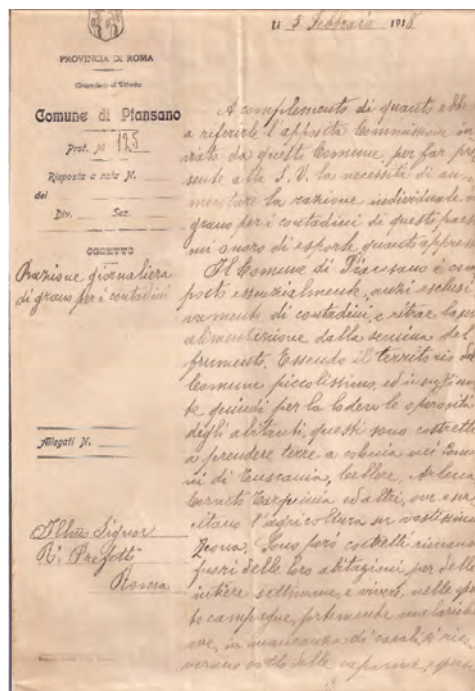 li 5 Febbraio 1918
PROVINCIA DI ROMA
Circondario di Viterbo
Comune di Piansano
Prot. N. 125
Risposta a nota N.
del
Div. Sez.
OGGETTO
Razione giornaliera
di grano per i contadini
Allegati N.
Illmo Signor
R. Prefetto
Roma
A complemento di quanto ebbe
a referirle l'apposita Commissione in
viata da questo Comune, per far pre
sente alla S. V. la necessità di au
mentare la razione individuale di
grano per i contadini di questi paesi
mi onoro di esporle quanto appresso
Il Comune di Piansano è com
posto essenzialmente, anzi esclusi
vamente di contadini, e ritrae la sua
alimentazione dalla semina del
frumento. Essendo il territorio del
Comune piccolissimo, ed insufficien
te quindi per la lodevole operosità
degli abitanti, questi sono costretti
a prendere terre a colonia nei Comu
ni di Tuscania, Cellere, Arlena
Corneto Tarquinia ed altri, ove eser
citano l'agricoltura su vastissima
zona. Sono però costretti rimaner
fuori delle loro abitazioni per delle
intiere settimane, e vivere nelle
te campagne, fortemente malariche
ove, in mancanza di casali, si rico
verano sotto delle capanne, e